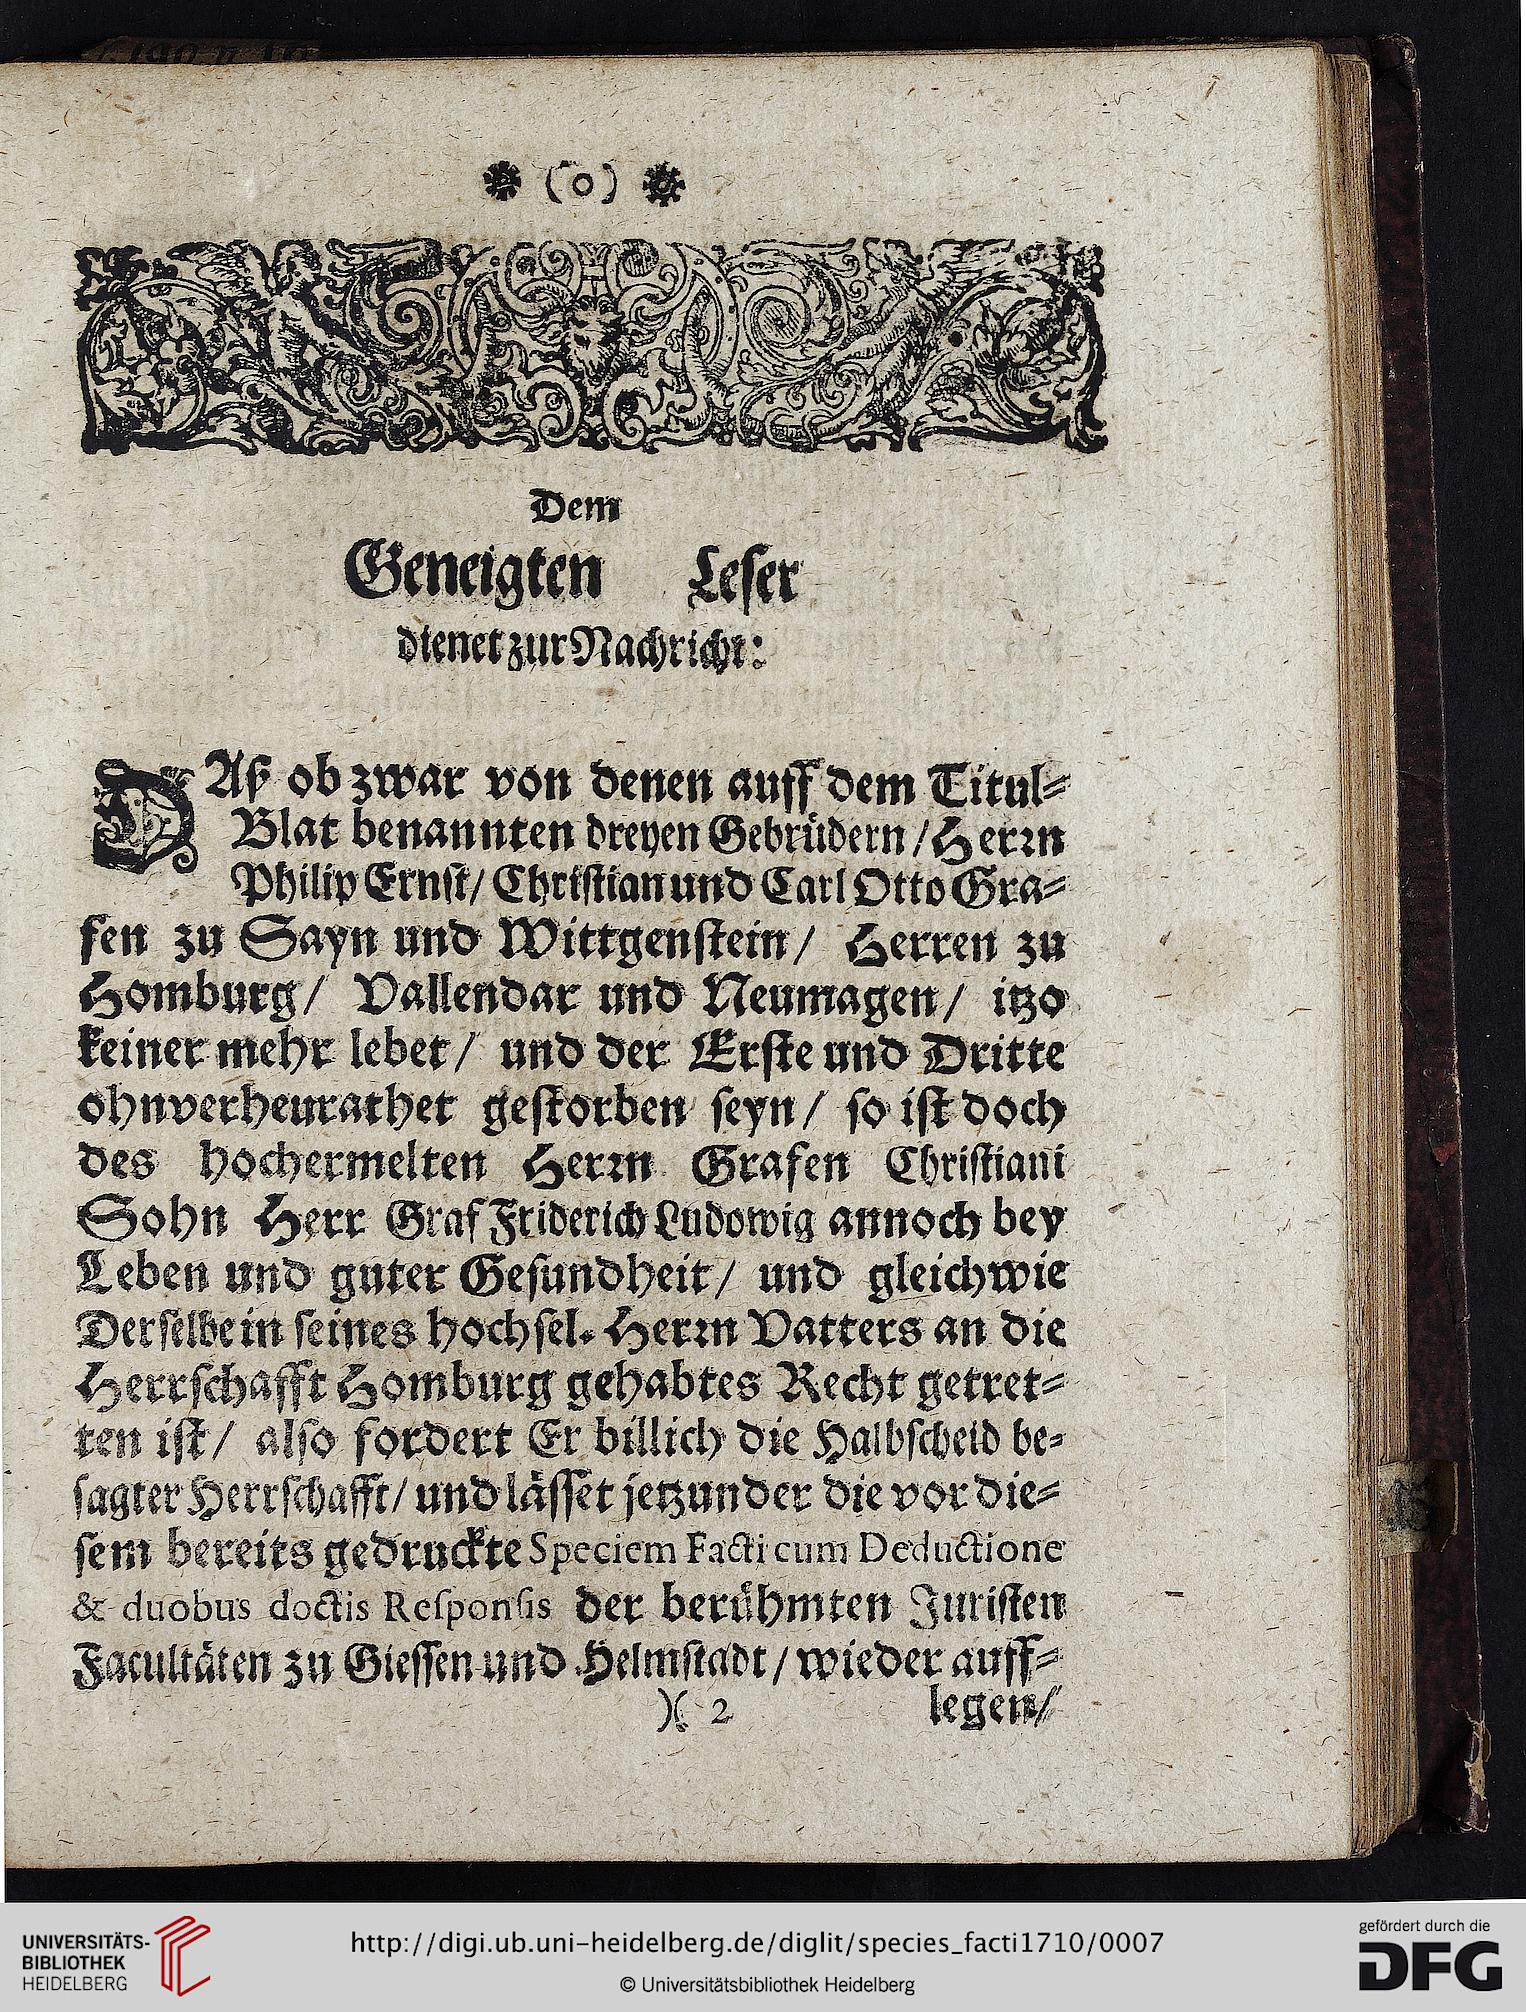 (o)
Dem
Geneigten Leser
dienet zur Nachricht:
DAß ob zwar von denen auff dem Titul-
Blat benannten dreyen Gebrüdern / Herrn
Philip Ernst / Christian und Carl Otto Gra-
fen zu Sayn und Wittgenstein / Herren zu
Homburg / Vallendar und Neumagen / itzo
keiner mehr lebet / und der Erste und Dritte
ohnverheurathet gestorben seyn / so ist doch
des hochermelten Herrn Grafen Christiani
Sohn Herr Graf Friderich Ludowig annoch bey
Leben und guter Gesundheit / und gleichwie
Derselbe in seines hochsel. Herrn Vatters an die
Herrschafft Homburg gehabtes Recht getret-
ten ist / also fordert Er billich die Halbscheid be-
sagter Herrschafft / und lässet jetzunder die vor die-
sem bereits gedruckte Speciem Facti cum Deductione
& duobus doctis Responsis der berühmten Juristen
Facultäten zu Giessen und Helmstadt / wieder auff-
)( 2 legen /
UNIVERSITÄTS-
BIBLIOTHEK
HEIDELBERG
http://digi.ub.uni-heidelberg.de/diglit/species_facti1710/0007
© Universitätsbibliothek Heidelberg
gefördert durch die
DFG